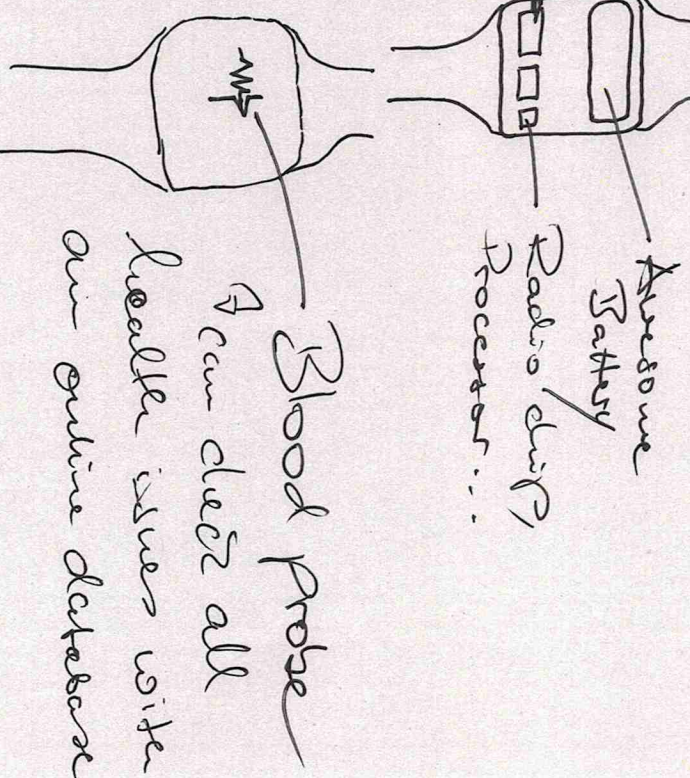 Awesome
Battery
Radio chip,
Processor...
Blood Probe
↳ can check all
health issues with
an online database